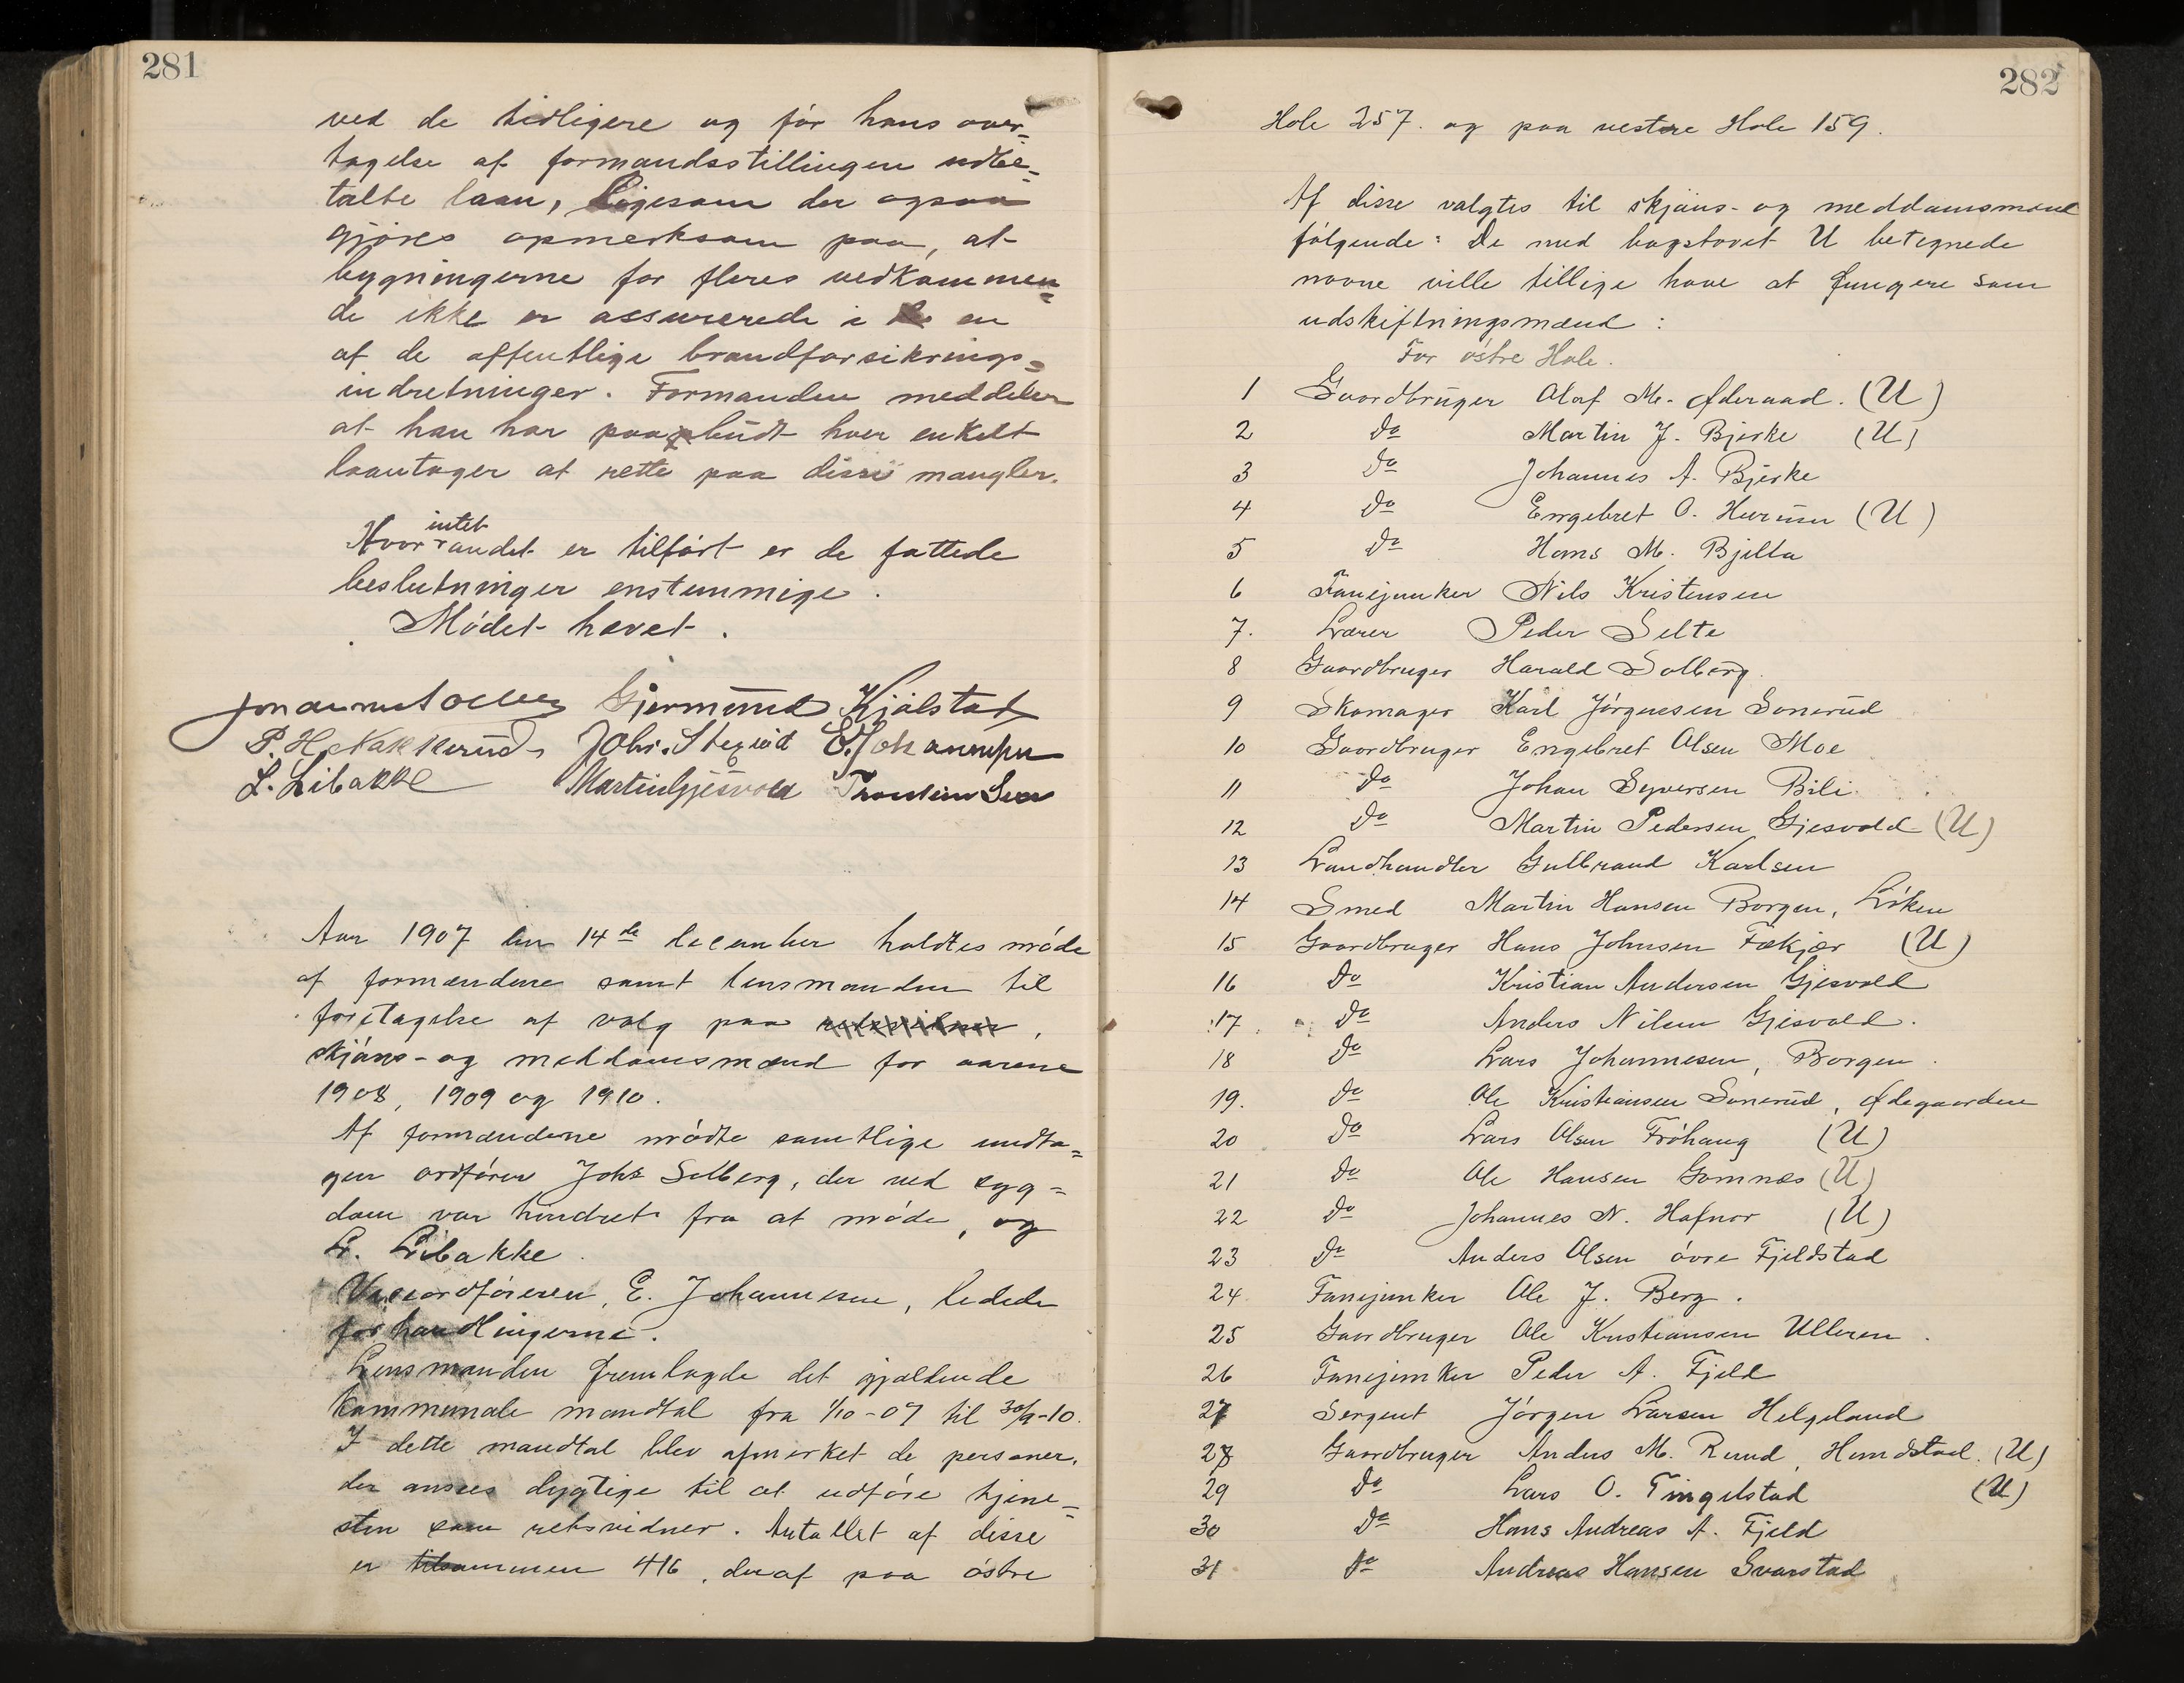 281
ved de tidligere og før hans over=
tagelse af formandsstillingen udbe=
talte laan, Ligesom der ogsaa
gjøres opmerksom paa, at
bygningerne for fleres vedkommen=
de ikke er assurerede i en
af de offentlige brandforsikrings=
indretninger. Formanden meddeler
at han har paabudt hver enkelt
laantager at rette paa disse mangler.
intet
Hvor andet er tilført er de fattede
beslutninger enstemmige.
Mødet hævet.
Gjermund Kjølstad
P. H. Nakkerud Johs. Stexiød E. Johannesen
L. Libakke Martin Gjesvold
Aar 1907 den 14de december holdtes møde
af formændene samt lensmanden til
foretagelse af valg paa retsvidner,
skjøns- og meddomsmænd for aarene
1908, 1909 og 1910.
Af formændene mødte samtlige undta=
gen ordfører Johs Solberg, der ved syg=
dom var hindret fra at møde, og
L. Libakke.
Viceordføreren, E. Johannesen, ledede
forhandlingerne.
Lensmanden fremlagde det gjældende
kommunale mandtal fra 1/10-07 til 30/9-10.
I dette mandtal blev afmerket de personer,
der ansees dygtige til at udføre tjene=
sten som retsvidner. Antallet af disse
er tilsammen 416, deraf paa østre
282
Hole 257. og paa vestre Hole 159.
Af disse valgtes til skjøns- og meddomsmænd
følgende: De med bogstavet U betegnede
navne ville tillige have at fungere som
udskiftningsmænd:
For østre Hole.
1 Gaardbruger Olaf M. Øderaad. (U)
2 do Martin J. Bjerke (U)
3 do Johannes A. Bjerke
4 do Engebret O. Hurum (U)
5 do Hans M. Bjella
6 Fanejunker Nils Kristensen
7. Lærer Peder Selte
8 Gaardbruger Harald Solberg.
9 Skomager Karl Jørgensen Sonerud
10 Gaardbruger Engebret Olsen Moe
11 do Johan Syversen Bili.
12 do Martin Pedersen Gjesvold (U)
13 Landhandler Gulbrand Karlsen
14 Smed Martin Hansen Borgen, Løken
15 Gaardbruger Hans Johnsen Fækjær (U)
16 do Kristian Andersen Gjesvold
17 do Anders Nilsen Gjesvold.
18 do Lars Johannesen, Borgen.
19. do Ole Kristiansen Sonerud, Ødegaarden
20 do Lars Olsen Frøhaug (U)
21 do Ole Hansen Gomnæs (U)
22 do Johannes N. Hafnor (U)
23 do Anders Olsen øvre Fjeldstad
24 Fanejunker Ole J. Berg.
25 Gaardbruger Ole Kristiansen Ulleren.
26 Fanejunker Peder A. Fjeld
27 Sergent Jørgen Larsen Helgeland
28 Gaardbruger Anders M. Ruud, Hundstad. (U)
29 do Lars O. Tingelstad (U)
30 do Hans Andreas A. Fjeld
31 do Andreas Hansen Svarstad